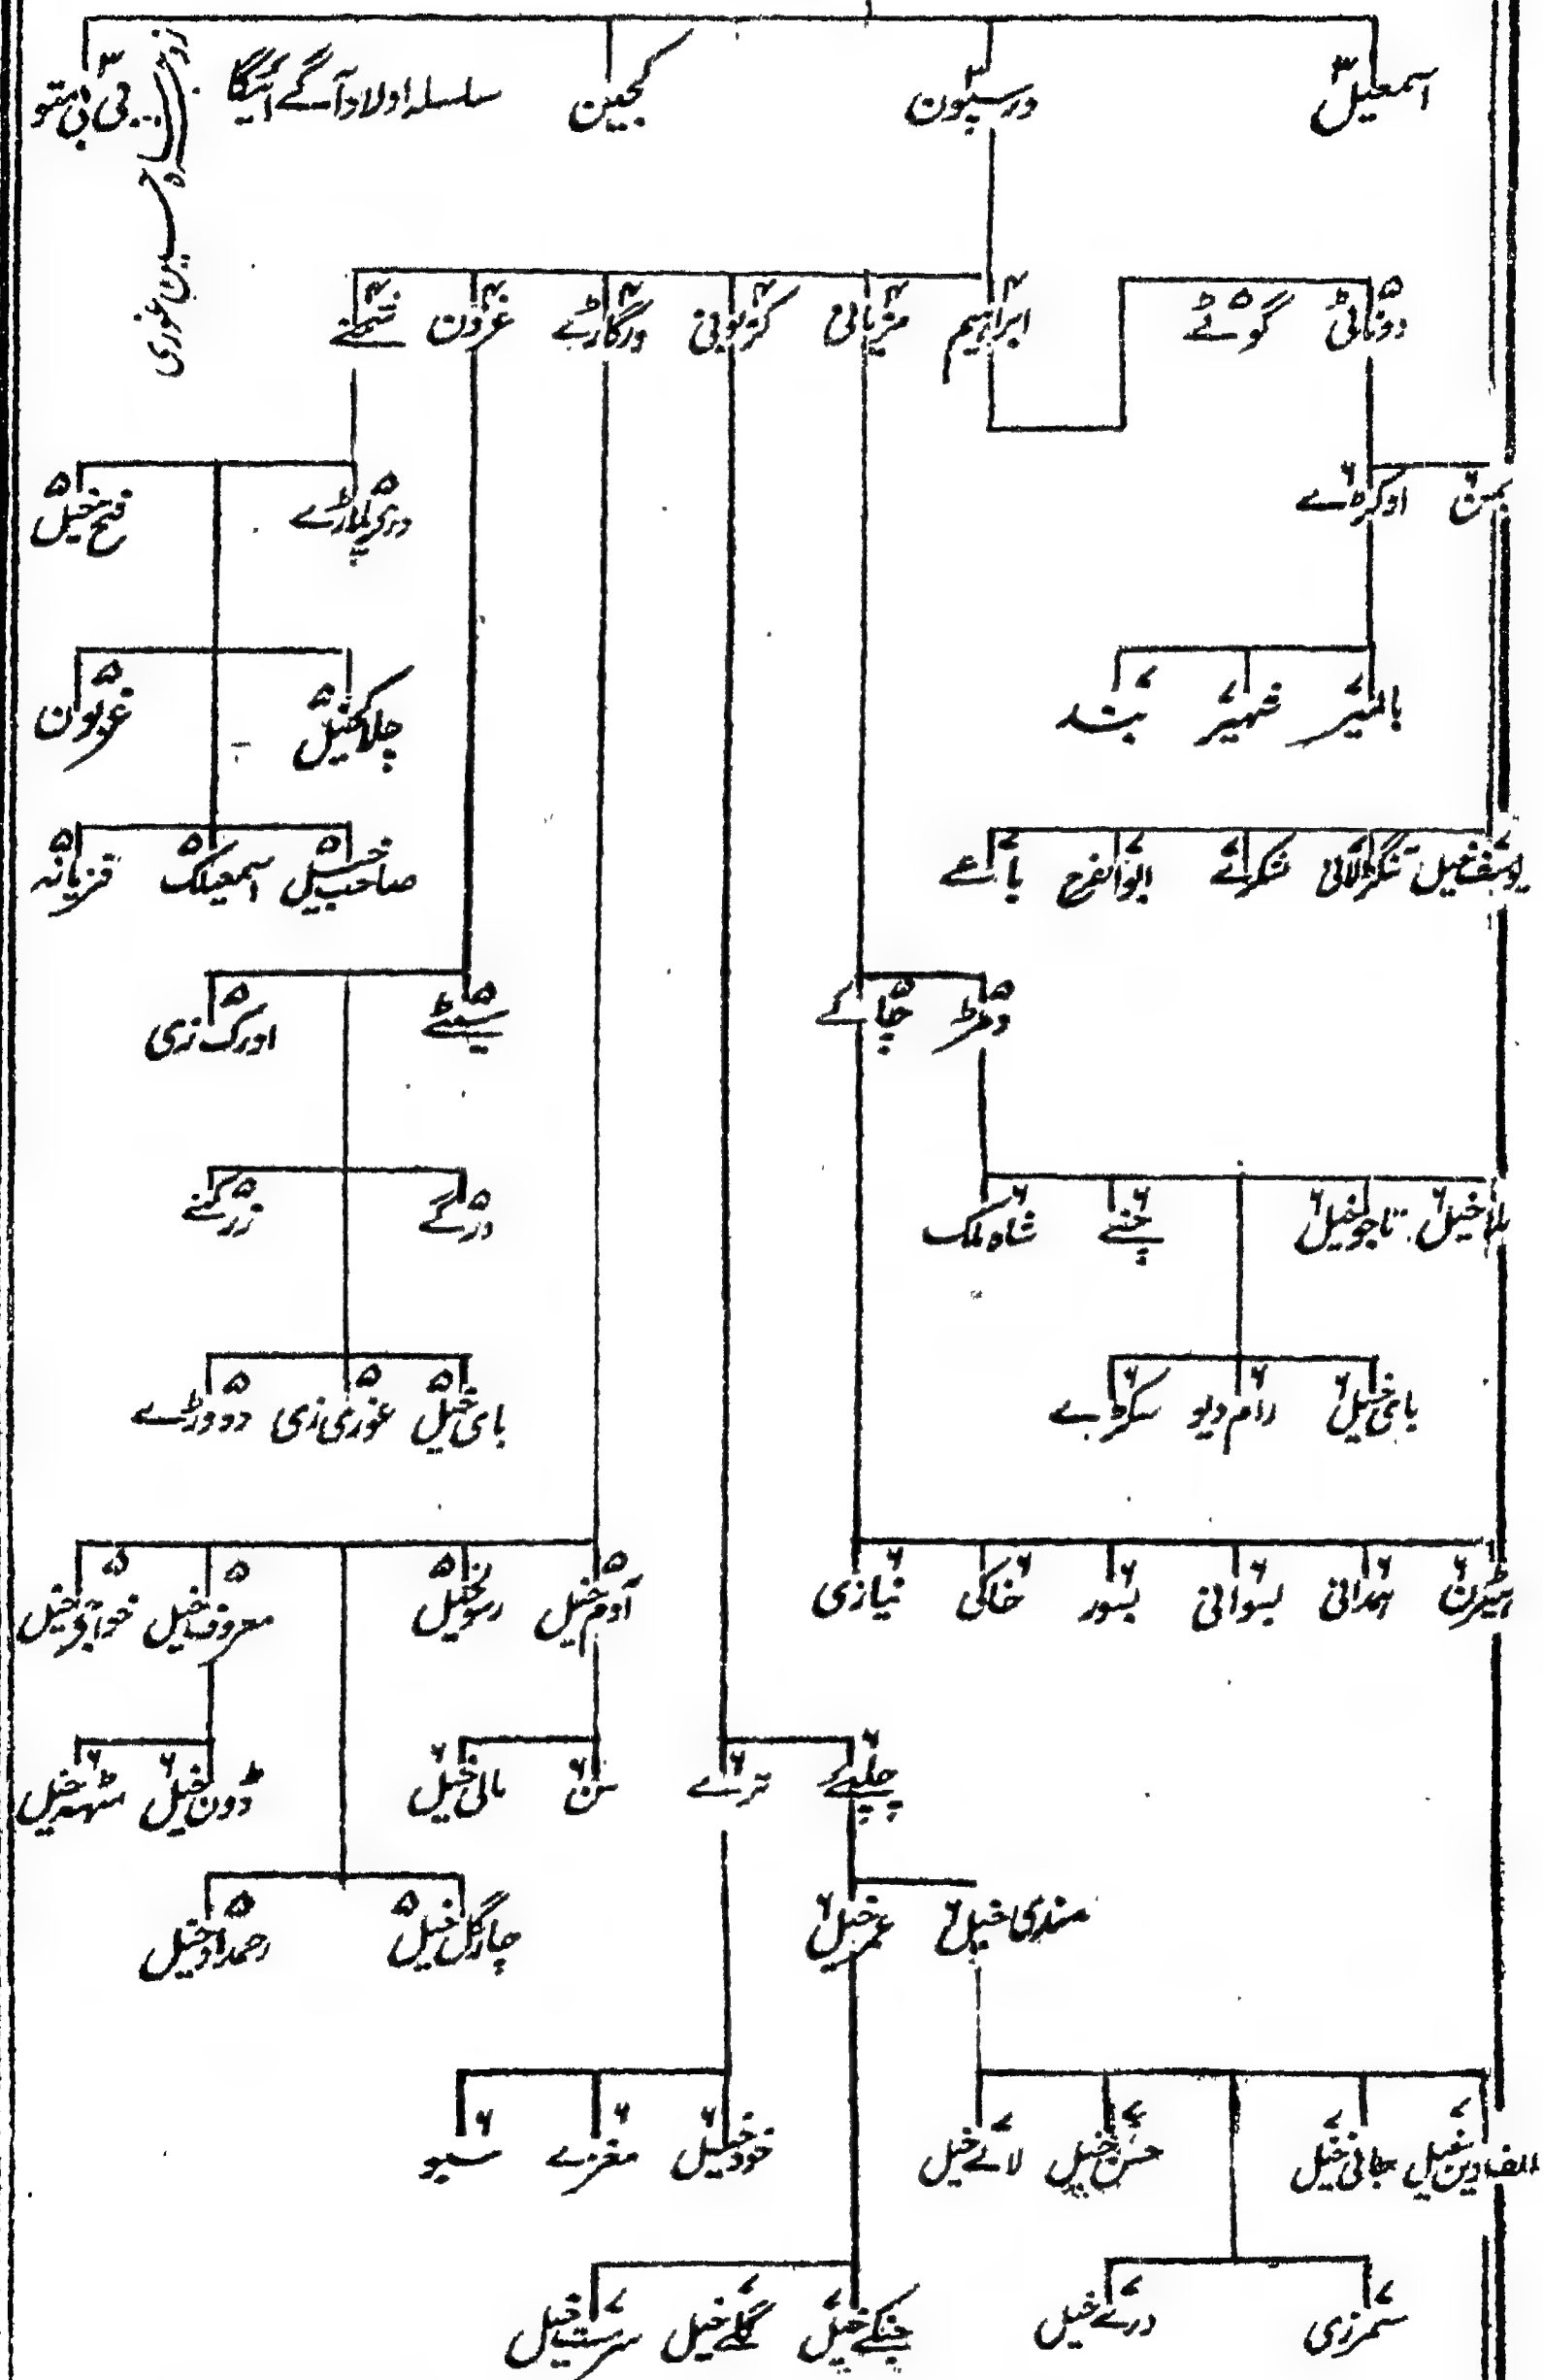 اسمعیل ۳ ورسپون ۳ کجین سلسلہ اولاد آگے آئیگا بی بی متو ۳
غوری
دوتانی ۵ گوئے ۵ ابراہیم ۴ مزیانی ۴ کڑبونی ۴ ورگاڑے ۴ غزون ۴
اوکڑے ۶ فتح خیل ۵
بالمیر ۷ شہمیر ۷ بند ۷ چلاکخیل ۵ غربون ۵
یوسف خیل ۷ تنگڑلانی ۷ شکرئے ۷ ابوالفرح ۷ صاحب خیل ۵ اسمعیلک ۵ قزیانہ ۵
وھڑ ۵ چاکے ۵ اورک زی ۵
تاجوخیل ۶ چخنے ۶ شاہ ملک ۶ درگے ۵ زرکنے ۵
بای خیل ۶ رام دیو ۶ سکڑبے ۶ بای خیل ۵ غوری زی ۵ دودڑے ۵
ہمدانی ۶ بسوانی ۶ بسور ۶ خاکی ۶ نیازی ۶ آدم خیل ۵ رسولخیل ۵ معروف خیل ۵ خواجہ خیل ۵
ترے ۶ سن ۶ مالی خیل ۶ ڈون خیل ۶
مندی خیل ۶ عمر خیل ۶ چارگل خیل ۵ رحمدادخیل ۵
الف دین خیل ۷ جانی خیل ۷ حسن خیل ۷ لائے خیل ۷ خودخیل ۶ مغزے ۶ سیو ۶
سمرزی ۷ درے خیل ۷ جنکے خیل ۷ گلے خیل ۷ سرمست خیل ۷